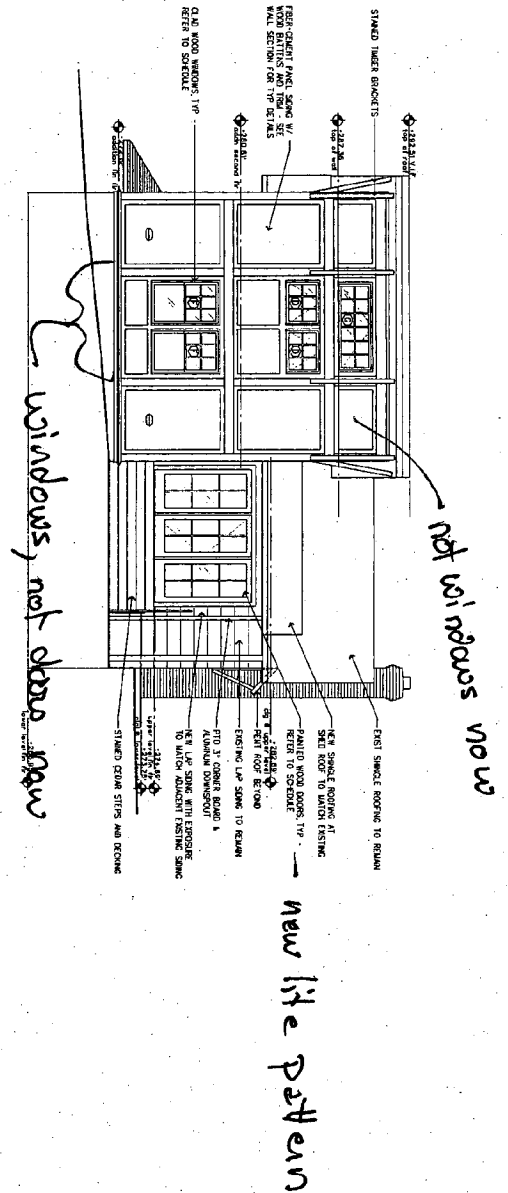 STAINED TIMBER BRACKETS
FIBER-CEMENT PANEL SIDING W/
WOOD BATTENS AND TRIM - SEE
WALL SECTION FOR TYP DETAILS
CLAD WOOD WINDOWS, TYP -
REFER TO SCHEDULE
top of roof
+287.36
top of wall
+280.61'
addn second flr
addition fin flr
G
D
D
E
F
not windows now
EXIST SHINGLE ROOFING TO REMAIN
NEW SHINGLE ROOFING AT
SHED ROOF TO MATCH EXISTING
PAINTED WOOD DOORS, TYP -
REFER TO SCHEDULE
new lite pattern
PENT ROOF BEYOND
EXISTING LAP SIDING TO REMAIN
PTD 3" CORNER BOARD &
ALUMINUM DOWNSPOUT
NEW LAP SIDING WITH EXPOSURE
TO MATCH ADJACENT EXISTING SIDING
STAINED CEDAR STEPS AND DECKING
windows, not doors now